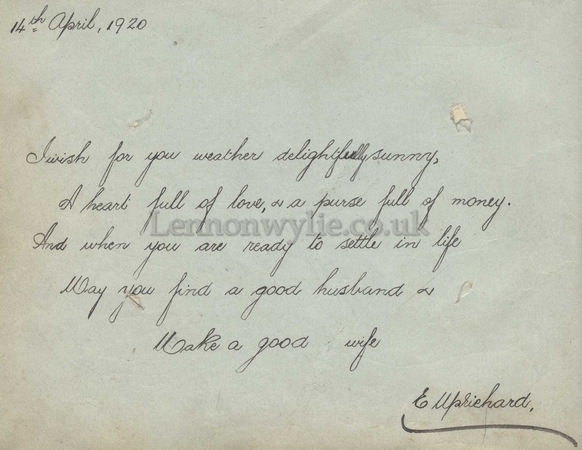 14th April, 1920
I wish for you weather delightfully sunny,
A heart full of love, & a purse full of money.
Lennonwylie.co.uk
And when you are ready to settle in life
May you find a good husband &
Make a good wife
E Uprichard,